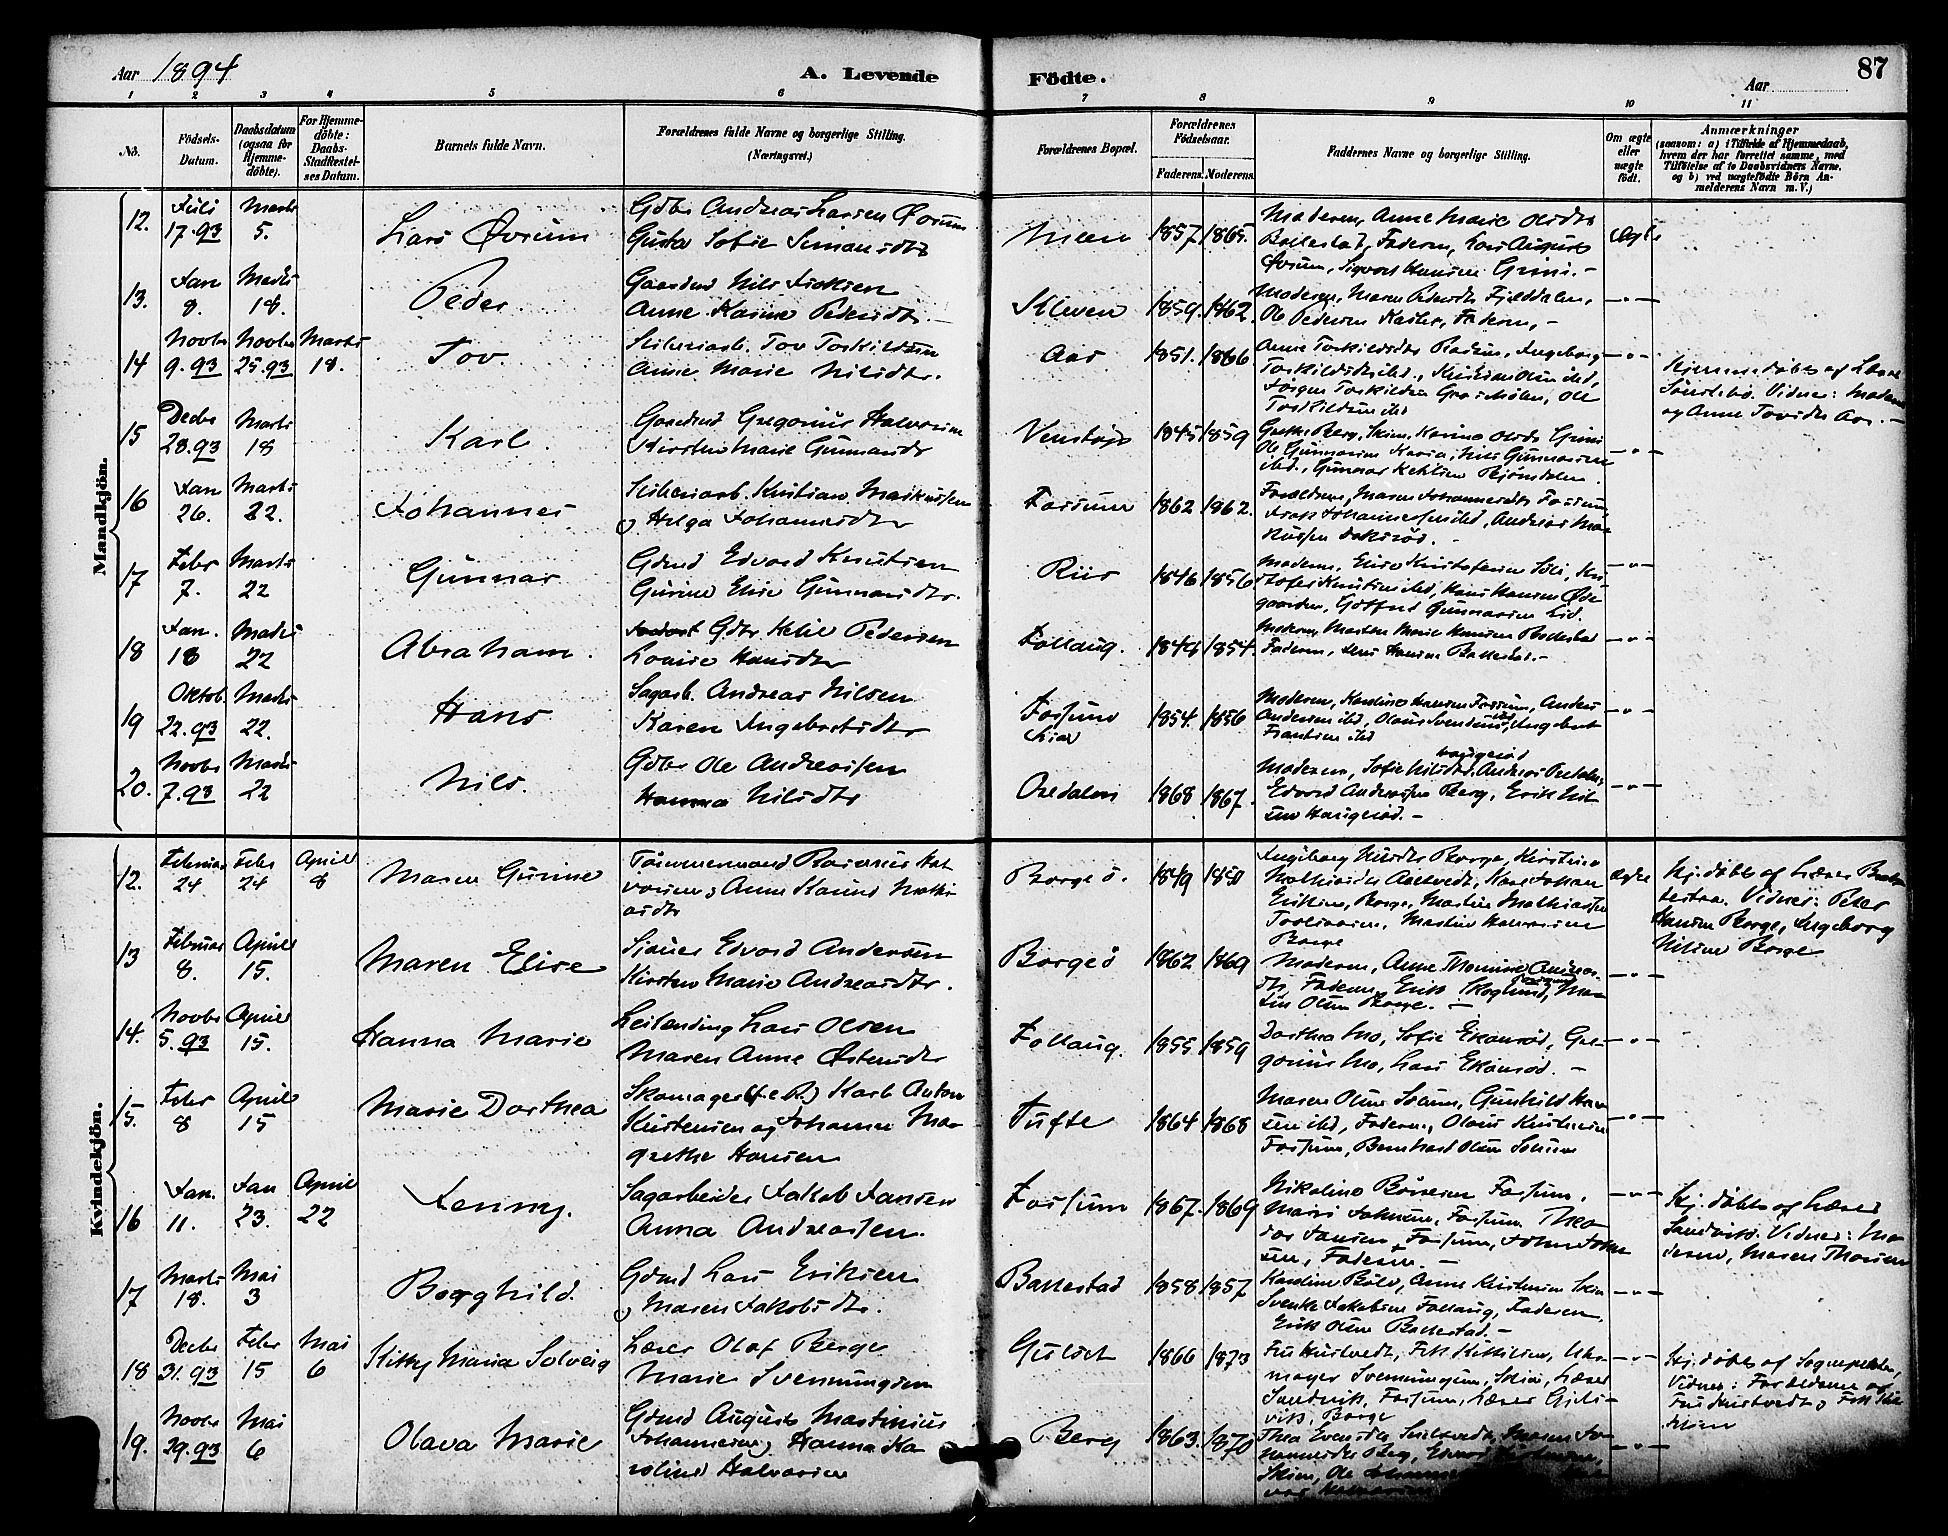 Aar 1894
A. Levende Födte.
Aar
87
1 2 3 4 5 6 7 8 9 10 11
No.
Födsels-Datum.
Daabsdatum (ogsaa for Hjemmedöbte).
For Hjemmedöbte: Daabs-Stadfæstelses Datum.
Barnets fulde Navn.
Forældrenes fulde Navne og borgerlige Stilling. (Næringsvei.)
Forældrenes Bopæl.
Forældrenes Födselsaar.
Faderens. Moderens.
Faddernes Navne og borgerlige Stilling.
Om ægte eller uægte födt.
Anmærkninger
(saasom: a) i Tilfælde af Hjemmedaab, hvem der har forrettet samme, med Tilföielse af to Daabsvidners Navne, og b) ved uægtefödte Börn Anmelderens Navn m. V.)
Mandkjön.
12. Juli 17.93 Marts 5. Lars Øvrum
Gdbr Andreas Larsen Øvrum
Gusta Sofie Simonsdtr
Moen 1857 1865.
Moderen, Anne Marie Olsdtr
Ballestad, Faderen, Lars August
Øvrum, Sigvart Hansen Grini.-
Ægte
13. Jan 8. Marts 18. Peder
Gaardmd Nils Isaksen
Anne Karine Pedersdtr.
Kleven 1859. 1862.
Moderen, Maren Pedersdtr Fjelddalen,
Ole Pedersen, Faderen, -
-"-
14 Novbr 9.93 Novbr 25.93 Marts 18. Tov.
Sliberiarb. Tov Torkildsen
Anne Marie Nilsdtr.
Aas 1851. 1866
Anne Torkildsdtr, Ingeborg
Torkildsdtr ibd., Kristian Olsen ibd,
Jörgen Torkildsen, Ole
Torkildsen ibd
-"-
Hjemmedöbt af Lærer
Vidner: Moderen
og Anne Tovsdtr Aas.-
15 Decbr 28.93 Marts 18 Karl.
Gaardmd Gregorius Halvorsen
Kirsten Marie Gunnarsdtr
Venstöp 1845 1859
Grethe Berg, Skien, Karine Olsdtr Grini
Ole Gunnarsen, Nils Gunnarsen
ibd., Gunnar Ketilsen
-"-
16 Jan 26. Marts 22. Johannes
Sliberiarb. Kristian Markussen
og Helga Johannesdtr
Fossum 1862 1862.
Forældrene, Maren Johannesdtr Fossum,
Isak Johannessen ibd, Andreas Mar
kussen
17 Febr 7. Marts 22 Gunnar
Gdmd Edvard Knutsen
Gurine Elise Gunnarsdtr.
Riis 1846 1856
Moderen, Elise Kristofersen Soli, Kri
stofer Knutsen ibd, Hans Hansen Øde
gaarden, Gotfred Gunnarsen Lid.
-"-
18 Jan. 18 Marts 22 Abraham.
Gdbr Kitil Pedersen
Lovise Hansdtr
Follaug. 1854.
Moderen, Marthe Marie Hansen Ballestad
Faderen, Hansen Ballestad.-
-"-
19 Oktob. 22.93 Marts 22. Hans
Sagarb. Andreas Nilsen
Karen Ingebretsdtr
Fossum
Lia 1854. 1856
Moderen, Karoline Hansen Fossum, Anders
Andersen ibd, Olaus Svendsen ibd, Ingebret
Frantsen ibd
-"-
20. Novbr 7.93 Marts 22 Nils.
Gdbr Ole Andreassen
Hanna Nilsdtr
Osedalen 1868 1867.
Moderen, Sofie Nilsdtr Haugerød, Andreas
Edvard Andreassen Berg, Erik Nil
sen Haugerød.-
-"-
Kvindekjön.
12. Februar 24 Febr 24 April 8 Maren Gurine
Tömmermand Rasmus Hal
vorsen og Anne Karine Mathi
asdtr
Borgeö. 1849 1850
Ingeborg Nilsdtr Borge, Kirstine
Mathiasdtr, Karl Johan
Eriksen, Borge, Martin Mathiassen
Martin Halvorsen
Borge
Ægte
Hj. döbt af Lærer
Vidner: Peter
Hansen Borge, Ingeborg
Nilsen Borge
13 Februar 8. April 15. Maren Elise
Sjauer Edvard Andersen
Kirsten Marie Andreasdtr.
Borgeö 1862 1869
Moderen, Anne Thomine Andreas
dtr, Faderen, Erik Skoglund, Mar
tin Olsen Borge.-
-"-
14. Novbr 5.93 April 15. Hanna Marie
Leilending Lars Olsen
Maren Anne Østensdtr
Follaug. 1855. 1859
Dorthea Mo, Sofie Ekornrød, Gre
gorius Mo, Lars Ekornrød. -
-"-
15. Febr 8 April 15 Marie Dorthea
Skomager (f.e.R.) Karl Anton
Kristensen og Johanne Mar
grethe Hansen
Tufte 1864 1868
Maren Olsen Solum, Gunhild Han
sen ibd, Faderen, Olaus Kristensen
Fossum, Bernhard Olsen Solum
-"-
16 Jan. 11. Jan 23. April 22 Jenny.
Sagarbeider Jakob Jansen
Anna Andreassen.
Fossum 1867. 1869
Nikoline Börresen Fossum.
Marie Johnsen, Fossum Theo
dor Jansen, Fossum, John John
sen, Faderen.-
-"-
Hj. döbt af Lærer
Sandvik. Vidner: Mo
deren, Maren Thorsen
17 Marts 18. Mai 3 Borghild.
Gdmd Lars Eriksen
og Maren Jakobsdtr.
Ballestad 1858 1857
Karoline Bula, Anne Kristensen Skien
Svenke Jakobsen Follaug, Faderen,
Erik Olsen Ballestad.-
-"-
18 Decbr 31.93 Febr 15 Mai 6 Kitty Maria Solveig
Lærer Olaf Berge
Marie Svennungsen
Gulset 1866 1873
Fru Kultvedt, Frk Kittilsen, Uhr
mager Svennungsen, Skien, Lærer
Sandvik, Fossum, Lærer Gjels
vik, Borge
-"-
Hj. döbt af Sognepresten,
Vidner: Forældrene og
Fru Kultvedt, Frk Kit
tilsen
19. Novbr 29.93 Mai 6 Olava Marie
Gdmd August Martinius
Johannesen og Hanna Ka
roline Halvorsen
Berg 1863. 1870
Thea Evensdtr, Maren Jo
hannesdtr Berg, Edvard
Skien, Ole Johannes
-"-